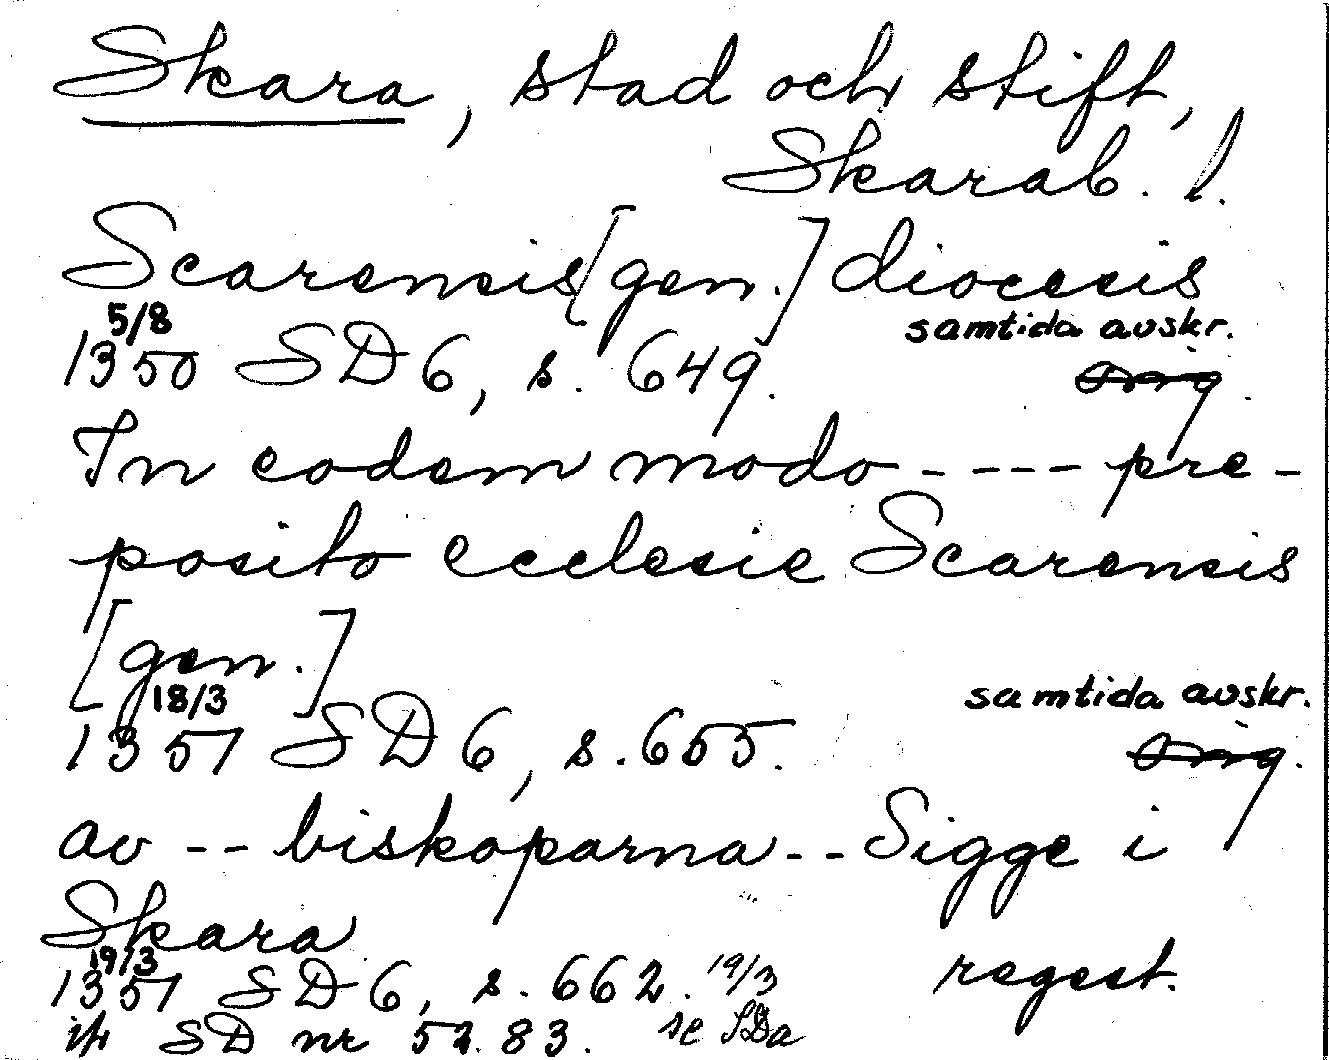 Skara, stad och stift,
Skarab. l.
Scarensis [gen.] diocesis
5/8 samtida avskr.
1350 SD 6, s. 649. orig.
In eodem modo - - - - pre-
posito ecclesie Scarensis
[gen.]
18/3 samtida avskr.
1351 SD 6, s. 655. orig.
av -- biskoparna -- Sigge i
Skara
19/3
1351 SD 6, s. 662. 19/3 regest.
jfr SD nr 5283. se SDa